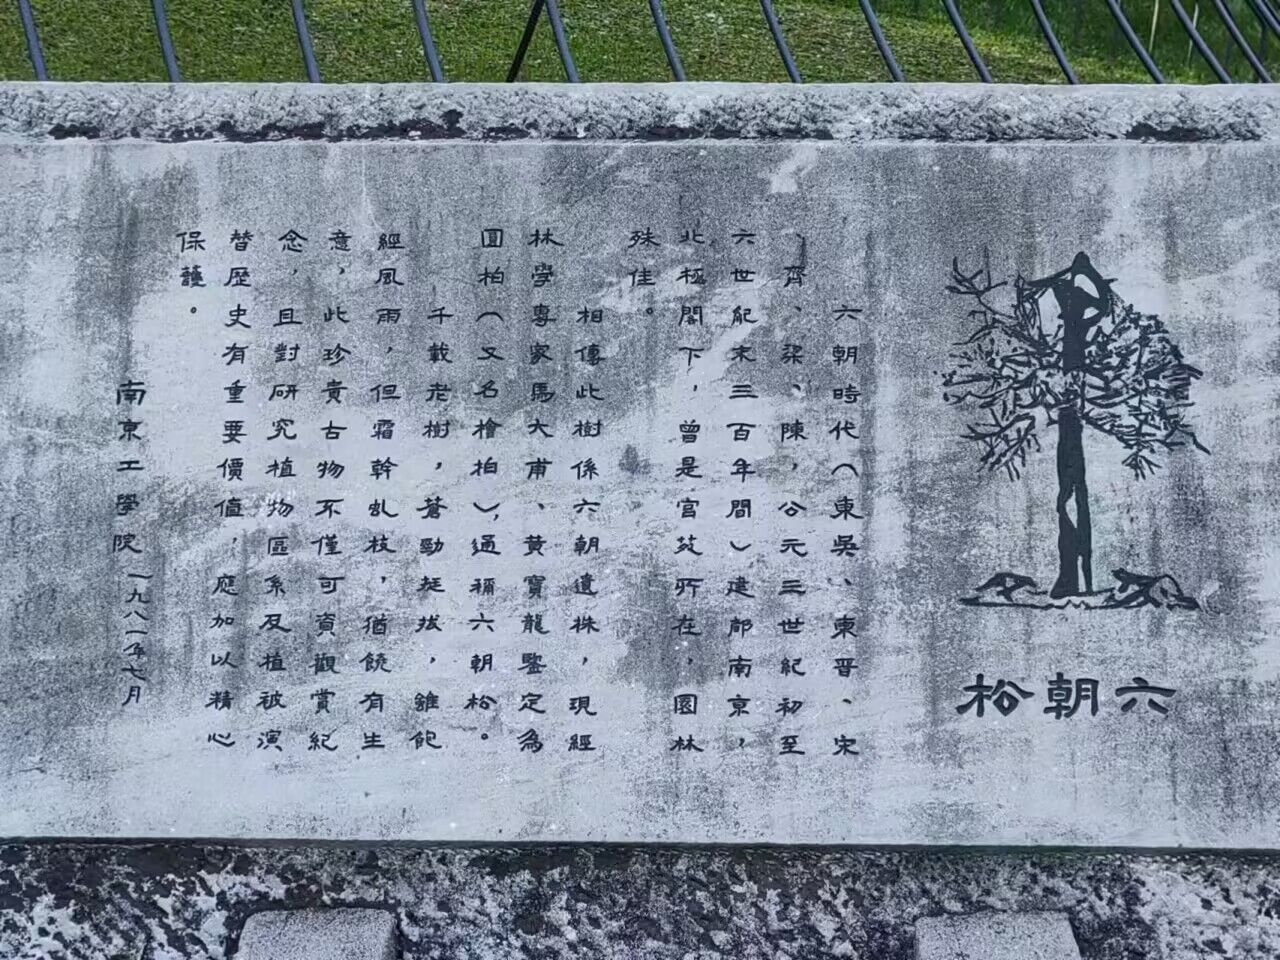 六朝松
六朝時代(東吳、東晋、宋
、齊、梁、陳,公元三世紀初至
六世紀末三百年間)建都南京,
北極閣下,曾是宮苑所在,園林
殊佳。
相傳此樹係六朝遺株,現經
林學專家馬大甫、黃寶龍鑒定為
圓柏(又名檜柏),通稱六朝松。
千載老樹,蒼勁挺拔,雖飽
經風雨,但霜幹虬枝,猶饒有生
意,此珍貴古物不僅可資觀賞紀
念,且對研究植物區系及植被演
替歷史有重要價值,應加以精心
保護。
南京工學院 一九八一年七月